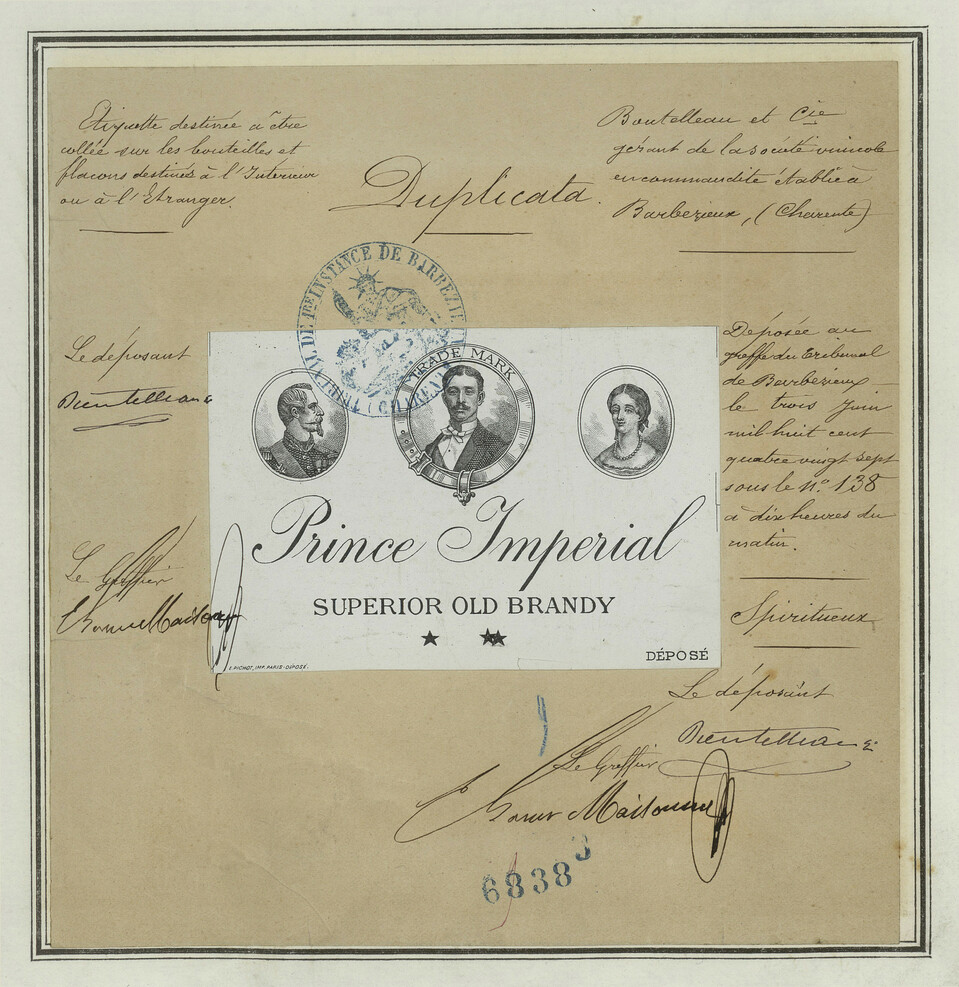 Etiquette destinée à être
collée sur les bouteilles et
flacons destinés à l'Intérieur
ou à l'Etranger.
Duplicata.
Boutelleau et Cie
gérant de la société vinicole
en commandite établie à
Barbezieux, (Charente)
AL DE 1ère INSTANCE DE BARBEZIE
(CHAREN
Le déposant
Boutelleau &
Le Greffier
TRADE MARK
Prince Imperial
SUPERIOR OLD BRANDY
DÉPOSÉ
E. PICHOT, IMP. PARIS-DÉPOSÉ.
Déposée au
greffe du tribunal
de Barbezieux
le trois juin
mil huit cent
quatre vingt sept
sous le No. 138
à dix heures du
matin.
Spiritueux
Le déposant
Boutelleau &
Le Greffier
6838
3